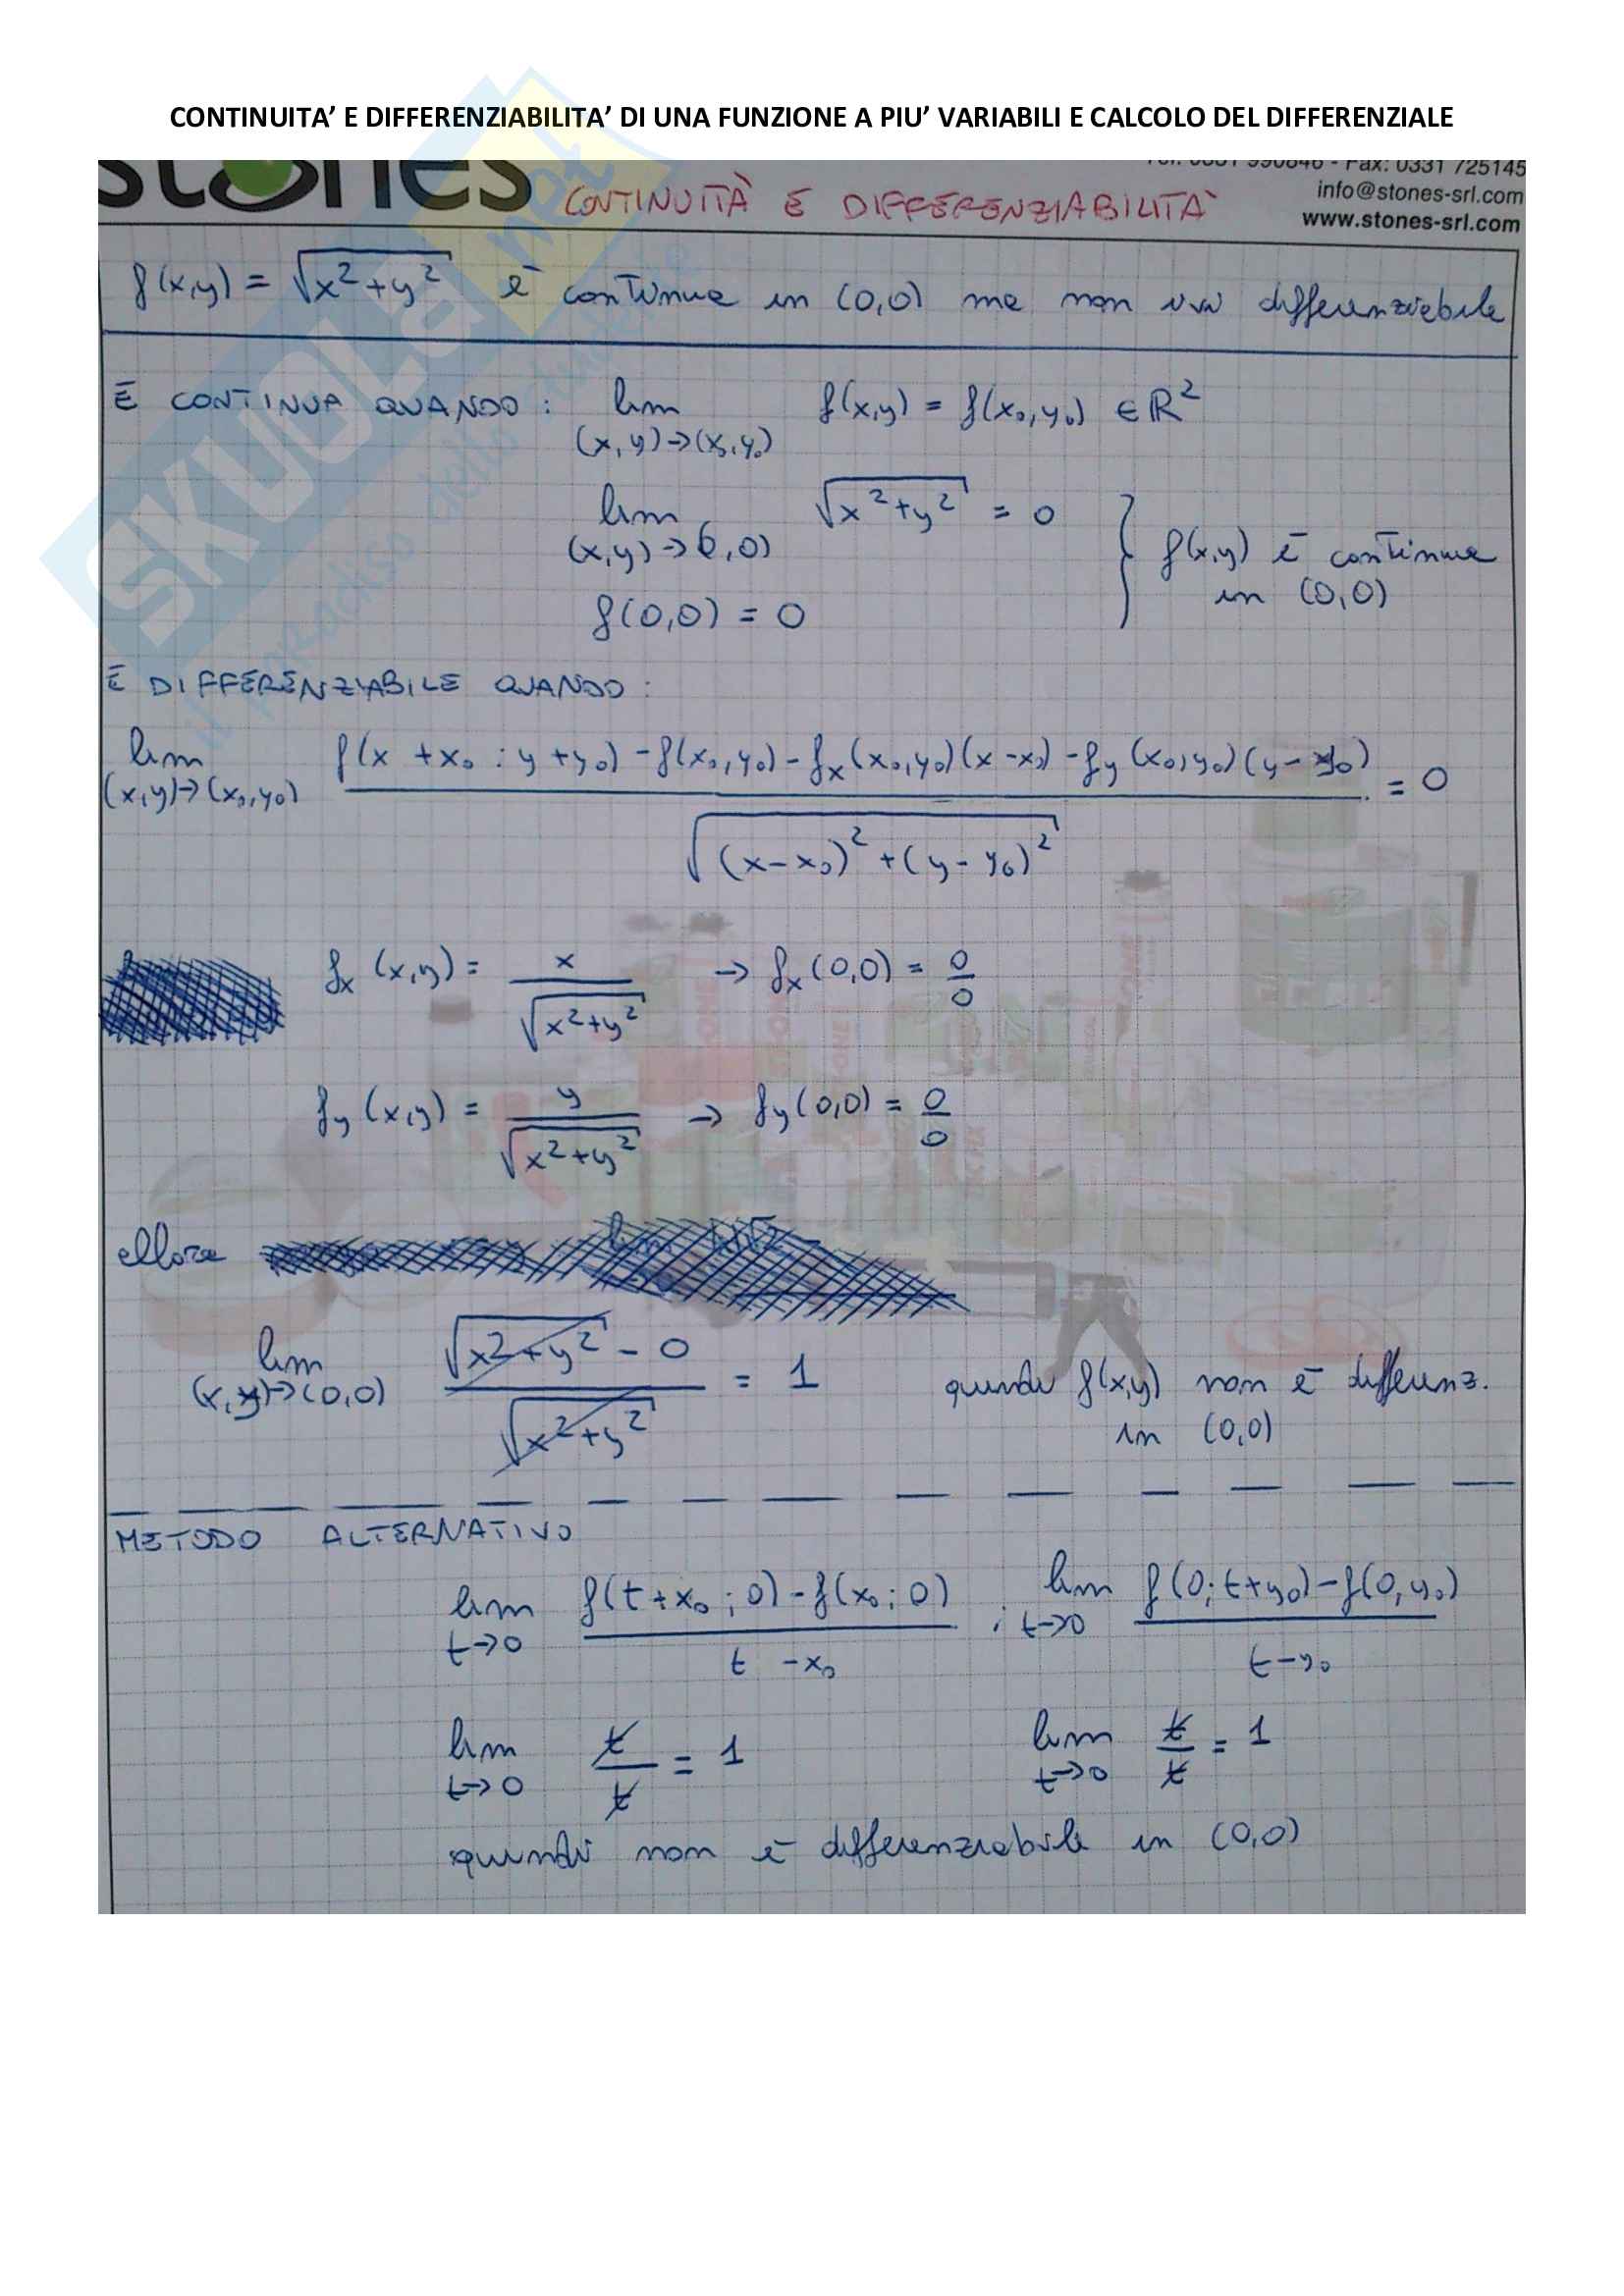 CONTINUITA’ E DIFFERENZIABILITA’ DI UNA FUNZIONE A PIU’ VARIABILI E CALCOLO DEL DIFFERENZIALE
stones
Tel. 0331 990846 - Fax: 0331 725145
info@stones-srl.com
www.stones-srl.com
CONTINUITÀ E DIFFERENZIABILITÀ
f(x,y) = √(x²+y²) è continua in (0,0) ma non ivi differenziabile
È CONTINUA QUANDO: lim (x,y)→(x₀,y₀) f(x,y) = f(x₀,y₀) ∈ ℝ²
lim (x,y)→(0,0) √(x²+y²) = 0
f(0,0) = 0
} f(x,y) è continua
in (0,0)
È DIFFERENZIABILE QUANDO:
lim (x,y)→(x₀,y₀) [f(x+x₀; y+y₀) - f(x₀,y₀) - fx(x₀,y₀)(x-x₀) - fy(x₀,y₀)(y-y₀)] / √((x-x₀)²+(y-y₀)²) = 0
fx(x,y) = x/√(x²+y²) → fx(0,0) = 0/0
fy(x,y) = y/√(x²+y²) → fy(0,0) = 0/0
allora
lim (x,y)→(0,0) (√(x²+y²) - 0)/√(x²+y²) = 1 quindi f(x,y) non è differenz.
in (0,0)
METODO ALTERNATIVO
lim t→0 [f(t+x₀; 0) - f(x₀; 0)]/(t-x₀) ; lim t→0 [f(0; t+y₀) - f(0,y₀)]/(t-y₀)
lim t→0 t/t = 1 lim t→0 t/t = 1
quindi non è differenziabile in (0,0)
SKUOLA.net
il paradiso dello studente